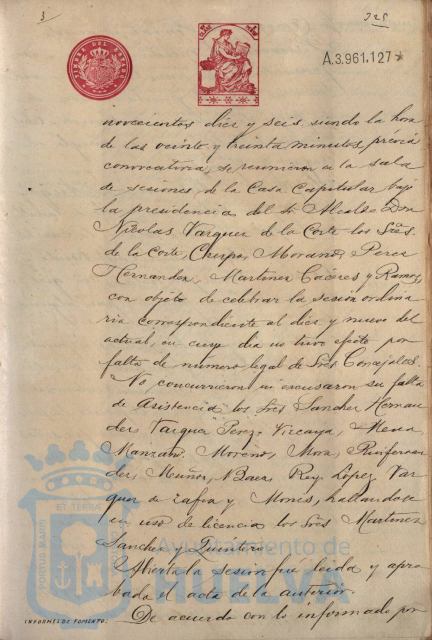 3
325
TIMBRE DEL ESTADO
A.3.961,127*
novecientos diez y seis, siendo la hora
de las veinte y treinta minutos, prévia
convocatoria, se reunieron en la sala
de sesiones de la Casa Capitular bajo
la presidencia del Sr Alcalde Don
Nicolas Vazquez de la Corte los Sres.
de la Corte, Crespo, Morano, Perez
Hernandez, Martinez Cáceres y Ramos,
con objeto de celebrar la sesión ordina
ria correspondiente al diez y nueve del
actual, en cuyo dia no tuvo efecto por
falta de número legal de Sres Concejales.
No concurrieron ni escusaron su falta
de asistencia los Sres Sanchez Hernan
dez, Vazquez Perez, Vizcaya, Mena
Manzano, Moreno, Mora,
dez, Muñoz, Baez, Rey, López, Vaz
quez de Zafra y Mones, hallandose
en uso de licencia los Sres Martinez
Sanchez y Quintero.
Abierta la sesión fue leida y apro
bada el acta de la anterior.
De acuerdo con lo informado por
INFORMES DE FOMENTO.
ET TERRA
PORTUS MARIS
Ayuntamiento de
HUELVA